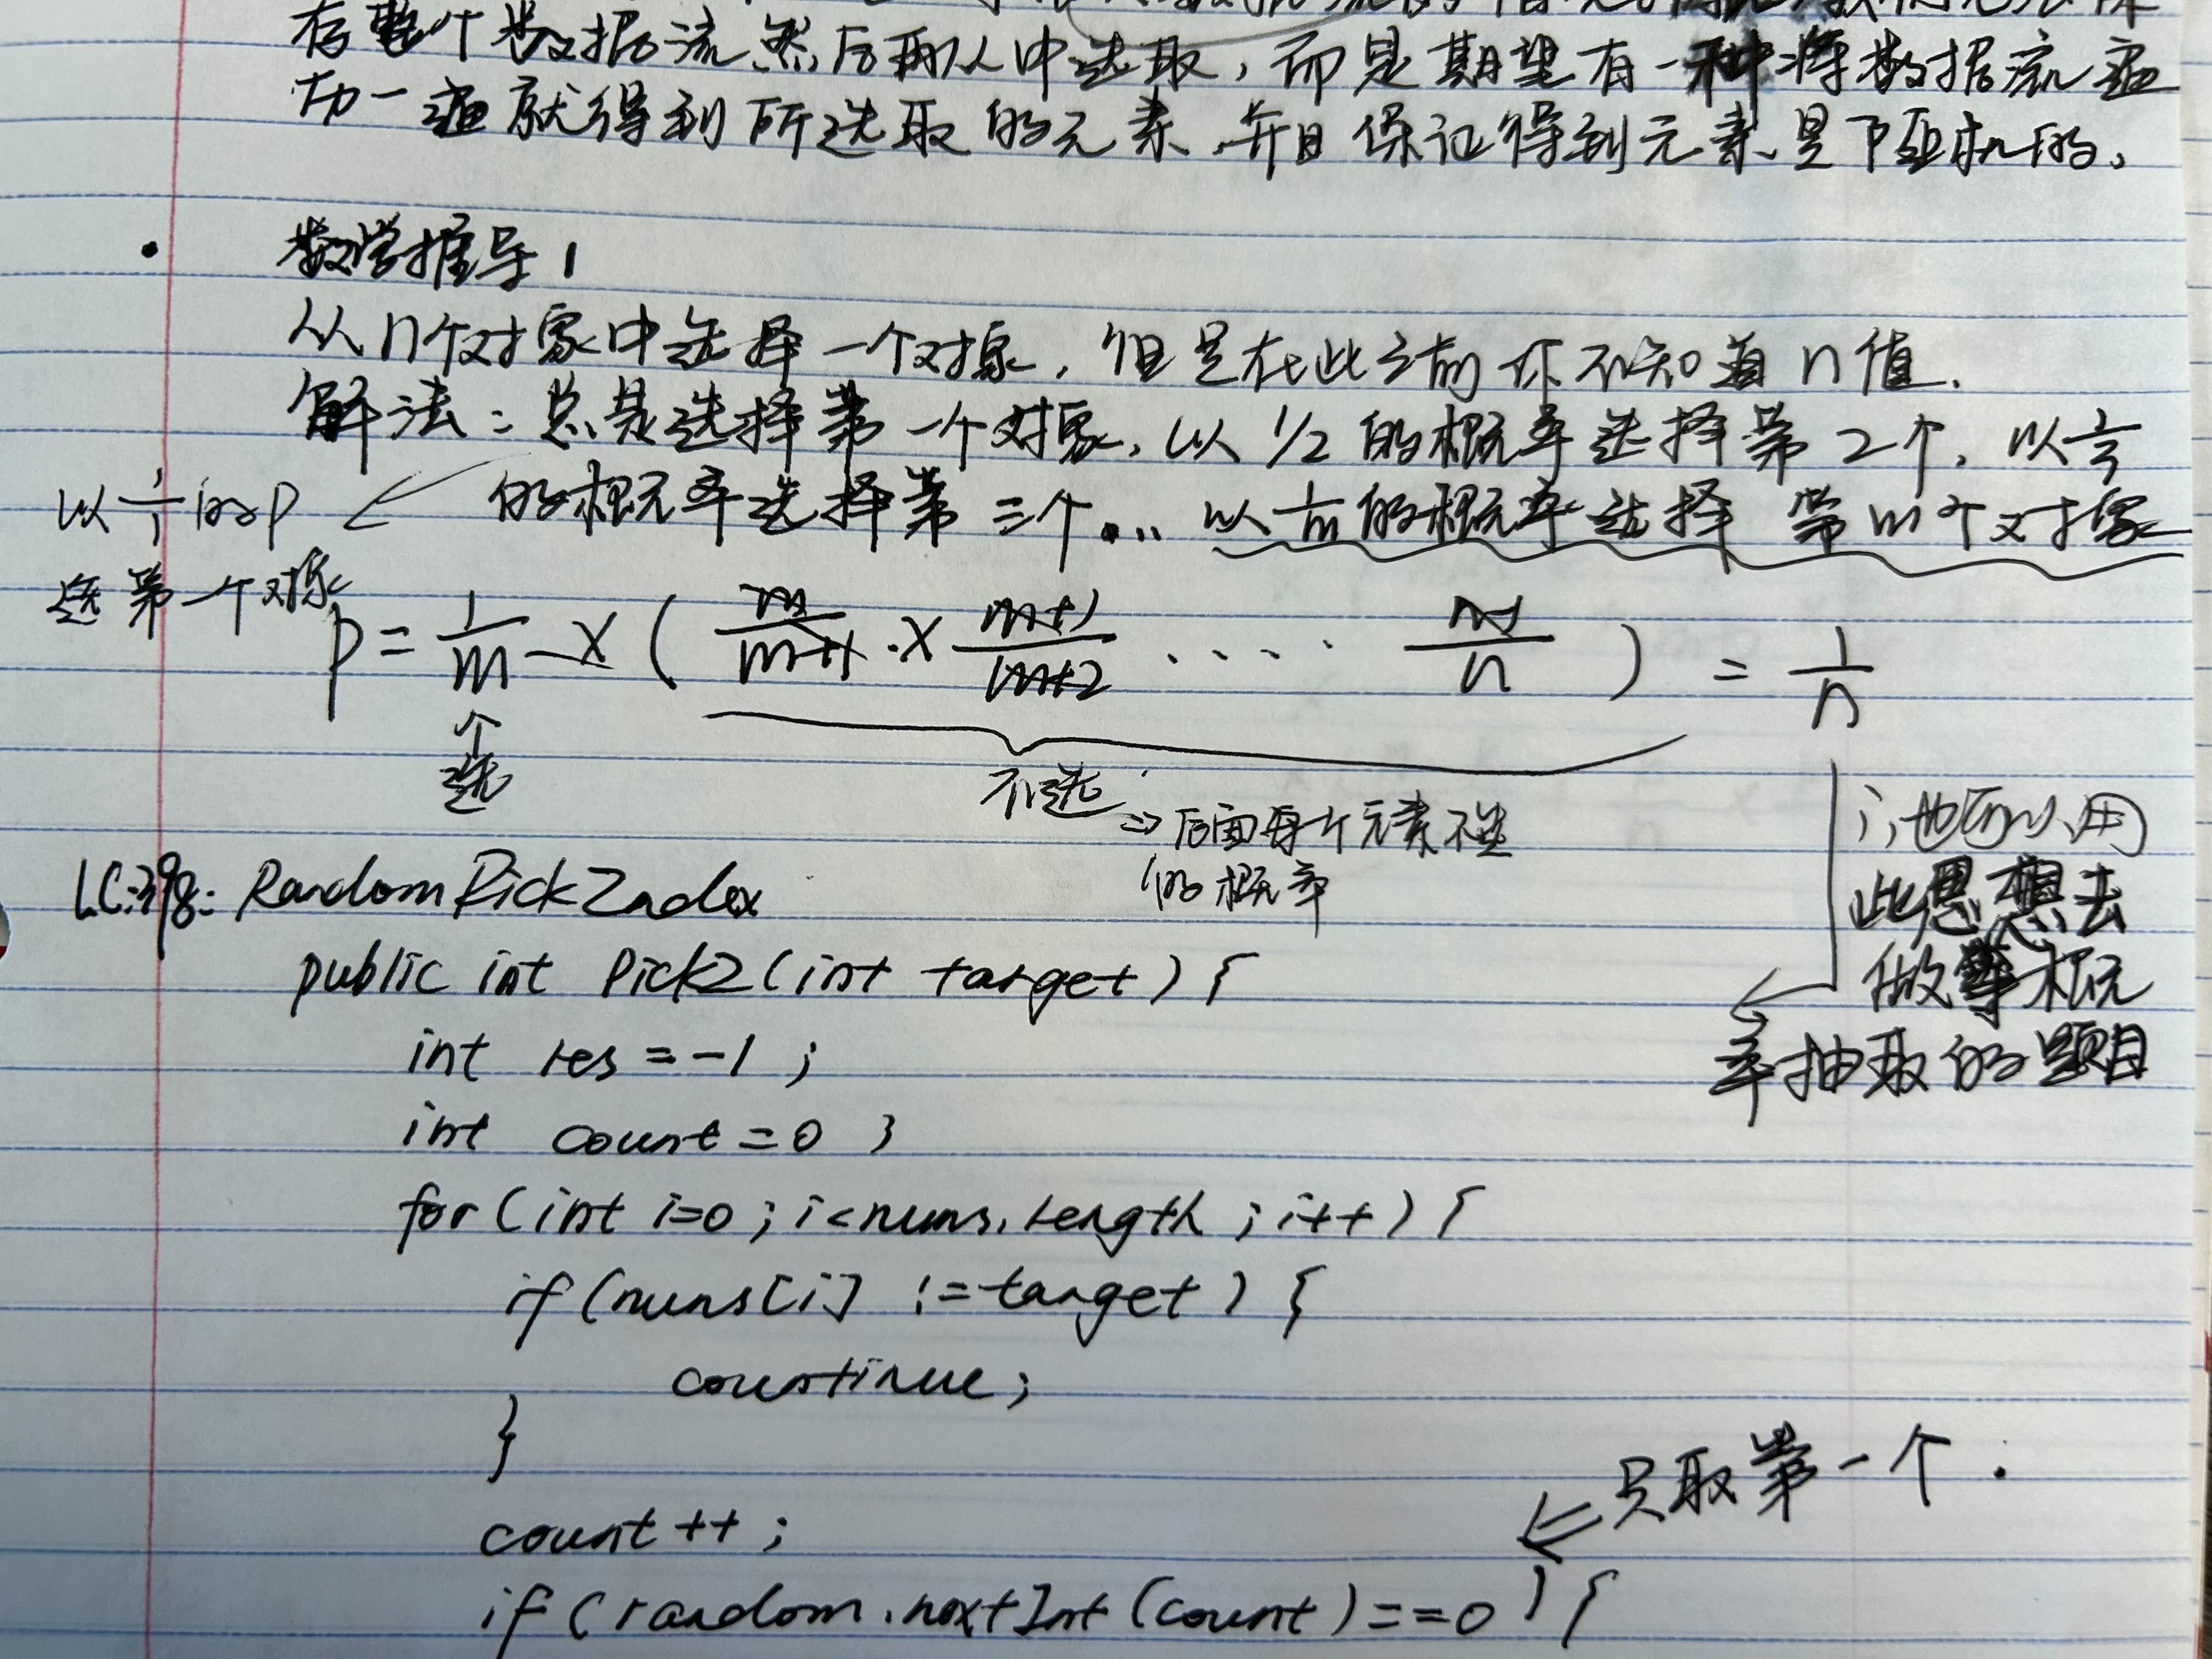 存整个数据流然后再从中选取，而是期望有一种将数据流遍
历一遍就得到所选取的元素，并且保证得到元素是随机的，
· 数学推导1
从n个对象中选择一个对象，但是在此之前你不知道n值.
解法：总是选择第一个对象，以1/2的概率选择第2个，以1/3
的概率选择第三个... 以1/m的概率选择 第m个对象
以1/1的P
选第一个对象
P = 1/m × ( m/m+1 · × m+1/m+2 ···· n-1/n ) = 1/n
↑
选
不选
⇒ 后面每个元素不选
的概率
也可以用
此思想去
做等概
率抽取的题目
LC:398: Random Pick Index
public int Pick2(int target) {
int res = -1 ;
int count = 0 ;
for (int i=0 ; i<nums.length ; i++) {
if (nums[i] != target) {
countinue;
}
count ++ ;
⇐ 只取第一个.
if (random.nextInt(count) == 0) {